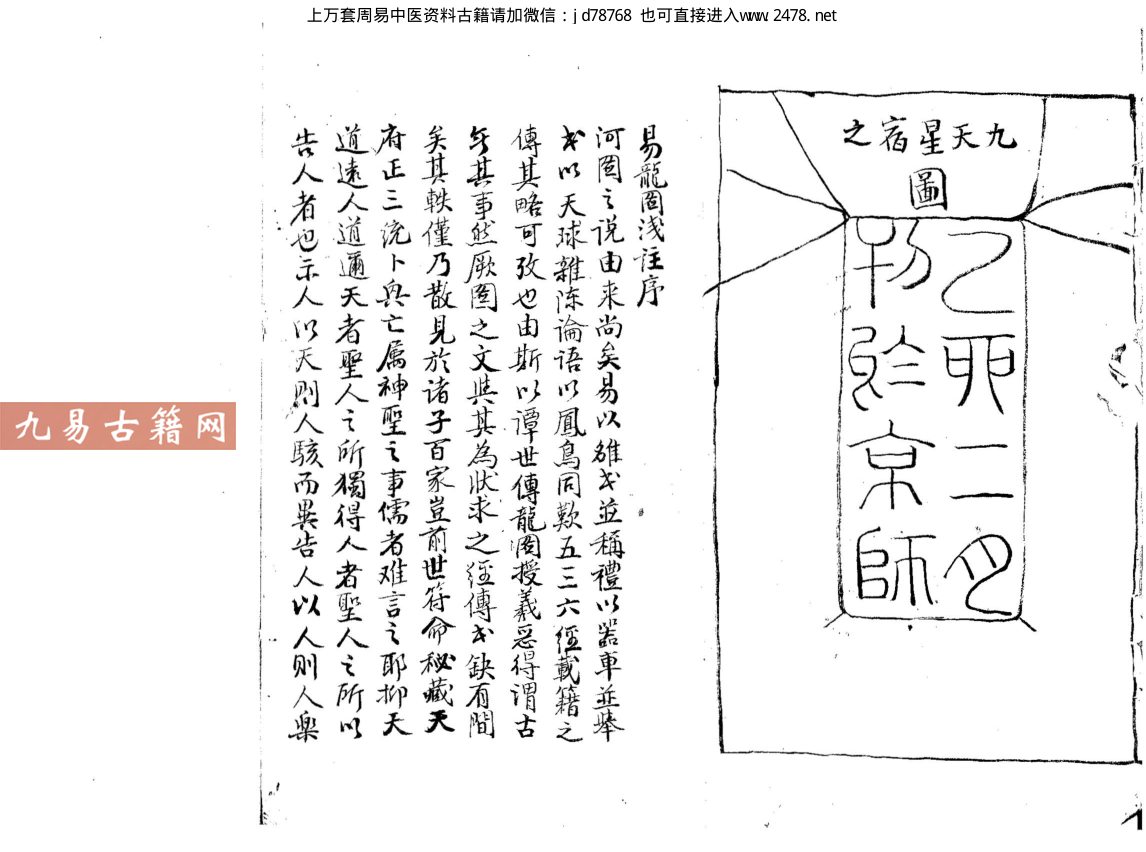 上万套周易中医资料古籍请加微信：jd78768 也可直接进入www.2478.net
九天星宿之
圖
乙卯二月
刊於京師
易龍圖淺註序
河圖之說由來尚矣易以雒書並稱禮以器車並舉
書以天球雜陈論語以鳳鳥同歎五三六經載籍之
傳其略可攷也由斯以譚世傳龍圖授羲惡得謂古
無其事然厥圖之文與其為狀求之經傳書缺有間
矣其軼僅乃散見於诸子百家豈前世符命秘藏天
府正三统卜興亡属神聖之事儒者难言之耶抑天
道遠人道邇天者聖人之所獨得人者聖人之所以
告人者也示人以天則人駭而異告人以人則人樂
九易古籍网
1